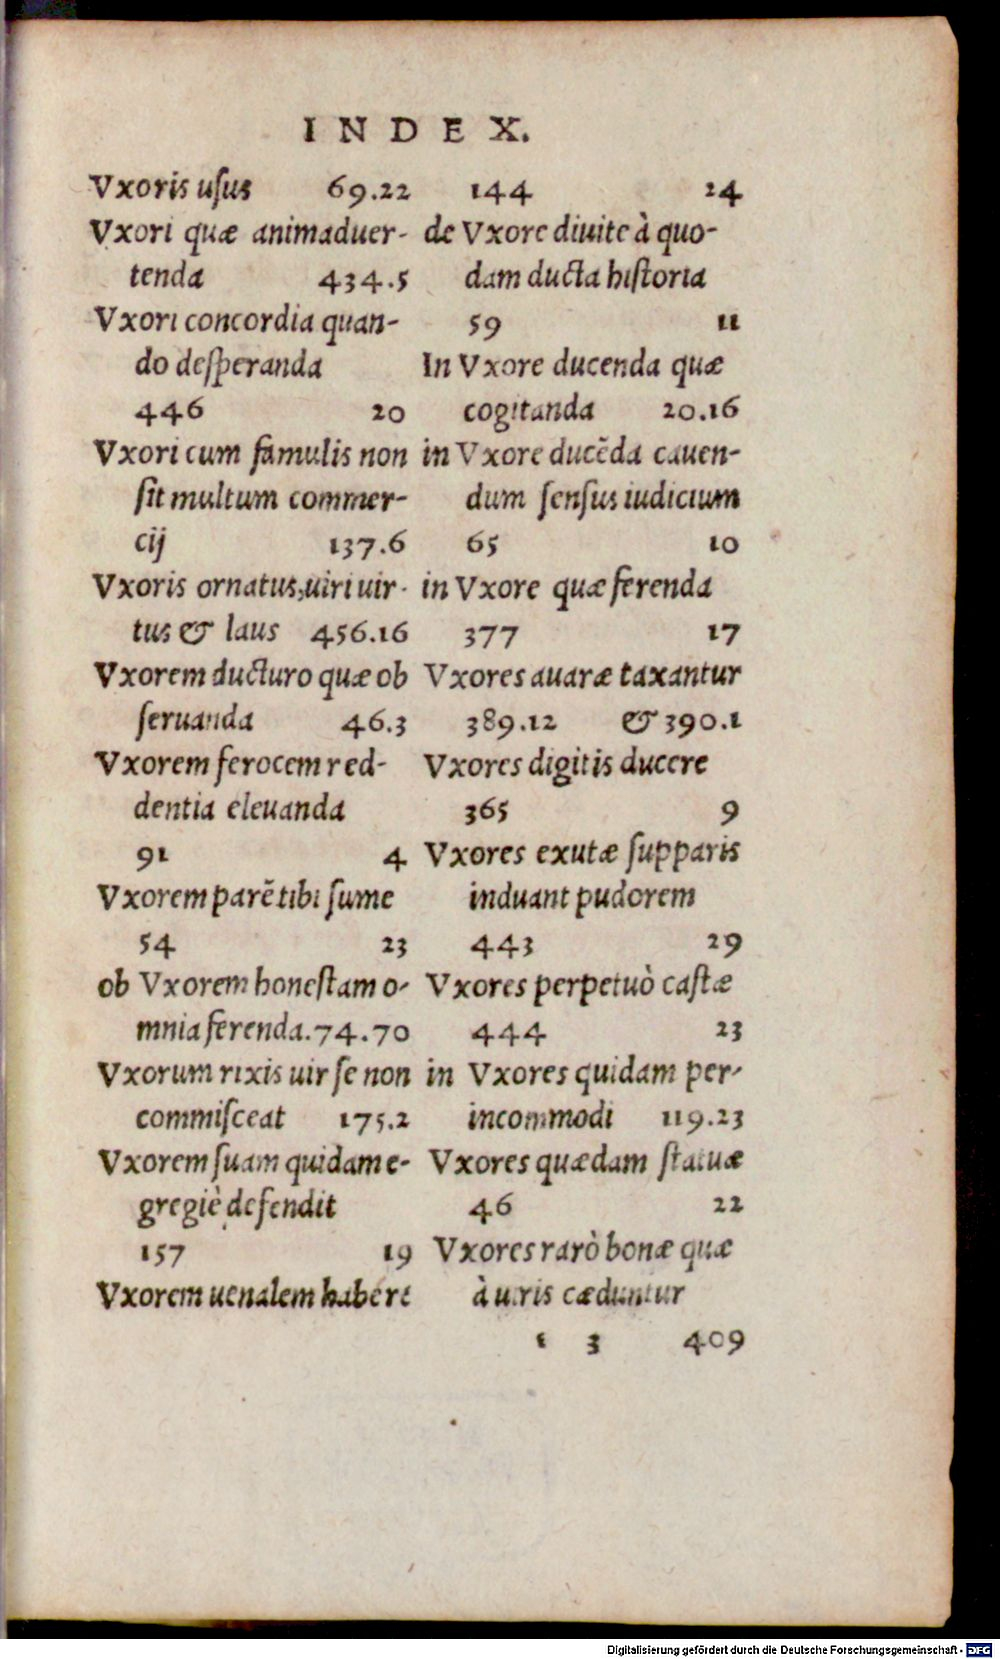 INDEX.
Vxoris usus 69.22
Vxori quæ animaduer-
tenda 434.5
Vxori concordia quan-
do desperanda
446 20
Vxori cum famulis non
sit multum commer-
cij 137.6
Vxoris ornatus, uiri uir-
tus & laus 456.16
Vxorem ducturo quæ ob
seruanda 46.3
Vxorem ferocem red-
dentia eleuanda
91 4
Vxorem parē tibi sume
54 23
ob Vxorem honestam o-
mnia ferenda. 74.70
Vxorum rixis uir se non
commisceat 175.2
Vxorem suam quidam e-
gregiè defendit
157 19
Vxorem uenalem habere
144 24
de Vxore diuite à quo-
dam ducta historia
59 11
In Vxore ducenda quæ
cogitanda 20.16
in Vxore ducēda cauen-
dum sensus iudicium
65 10
in Vxore quæ ferenda
377 17
Vxores auaræ taxantur
389.12 & 390.1
Vxores digitis ducere
365 9
Vxores exutæ supparis
induant pudorem
443 29
Vxores perpetuò castæ
444 23
in Vxores quidam per-
incommodi 119.23
Vxores quædam statuæ
46 22
Vxores rarò bonæ quæ
à uiris cæduntur
3 409
Digitalisierung gefördert durch die Deutsche Forschungsgemeinschaft - DFG